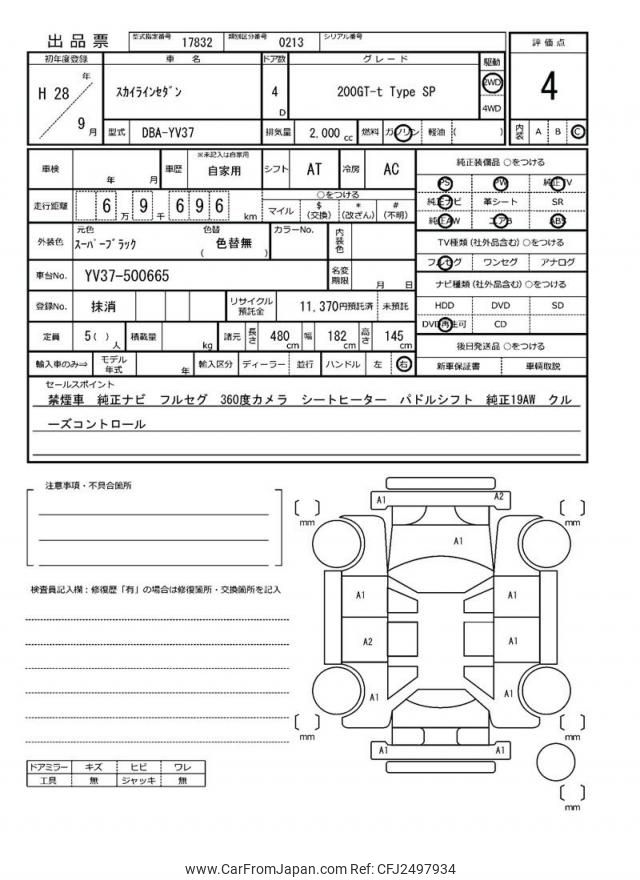 出品票 型式指定番号 17832 類別区分番号 0213 シリアル番号
初年度登録 車 名 ドア数 グレード 駆動 評価点
H 28 年 9 月 スカイラインセダン 4 D 200GT-t Type SP 2WD 4WD 4
型式 DBA-YV37 排気量 2,000 cc 燃料 ガソリン 軽油 ( ) 内装 A B C
車検 年 月 車歴 ※未記入は自家用 自家用 シフト AT 冷房 AC
純正装備品 ○をつける
PS PW 純正TV
純正ナビ 革シート SR
純正AW エアB ABS
走行距離 6 万 9 千 6 9 6 km
○をつける
マイル $ (交換) * (改ざん) # (不明)
外装色 元色 スーパーブラック 色替 ( 色替無 ) カラーNo. 内装色
TV種類(社外品含む)○をつける
フルセグ ワンセグ アナログ
車台No. YV37-500665 名変期限 月 日
ナビ種類(社外品含む)○をつける
HDD DVD SD
DVD再生可 CD
登録No. 抹消 リサイクル預託金 11,370円預託済 未預託
定員 5( ) 人 積載量 kg 諸元 長さ 480 cm 幅 182 cm 高さ 145 cm
後日発送品 ○をつける
新車保証書 車輌取説
輸入車のみ⇒ モデル年式 年 輸入区分 ディーラー 並行 ハンドル 左 右
セールスポイント
禁煙車 純正ナビ フルセグ 360度カメラ シートヒーター パドルシフト 純正19AW クル
ーズコントロール
注意事項・不具合箇所
検査員記入欄:修復歴「有」の場合は修復箇所・交換箇所を記入
ドアミラー キズ ヒビ ワレ
工具 無 ジャッキ 無
A1 A2
mm mm
A1
A1 A1
A2 A1
A1 A1
mm mm
A1 A1
mm
www.CarFromJapan.com Ref: CFJ2497934